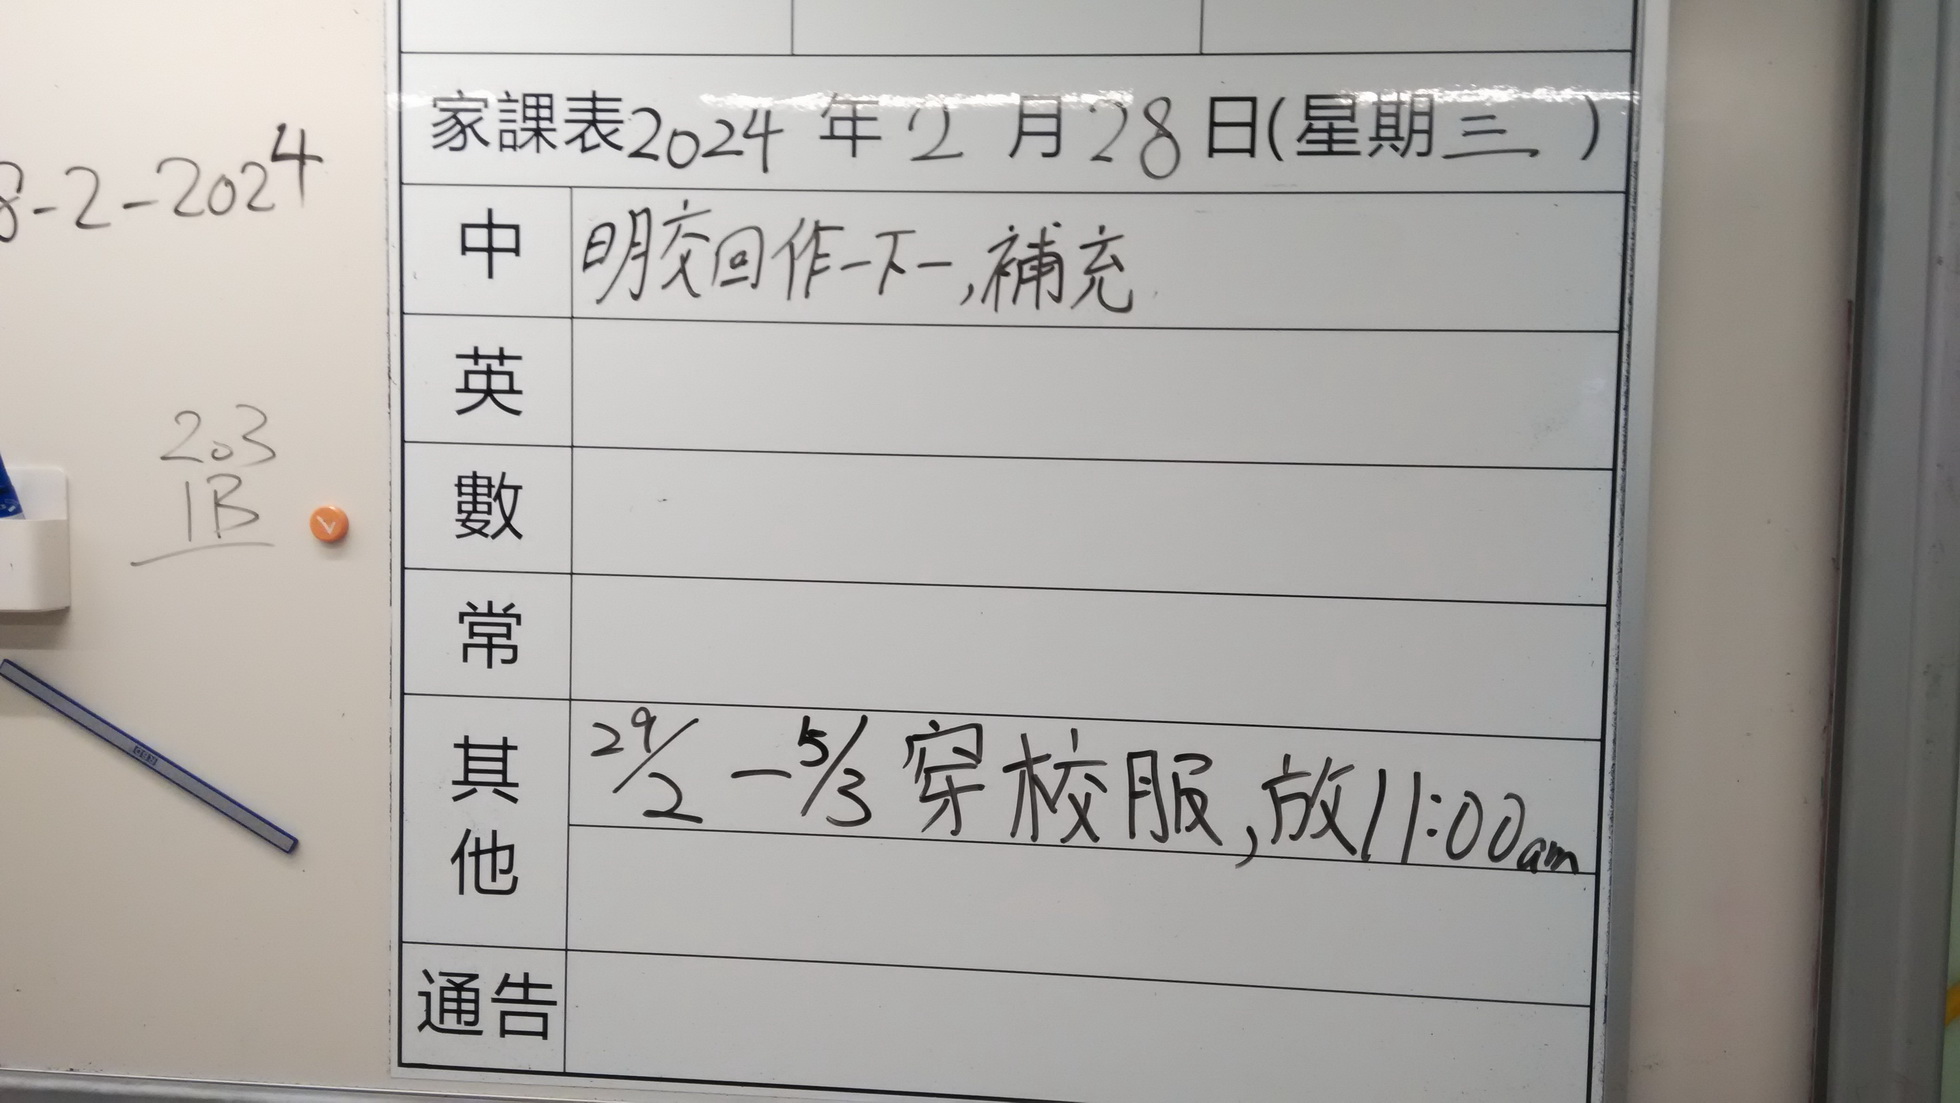 8-2-2024
203
1B
家課表2024年2月28日(星期三)
中 明交回作一下一,補充
英
數
常
其他 29/2－5/3 穿校服,放11:00am
通告